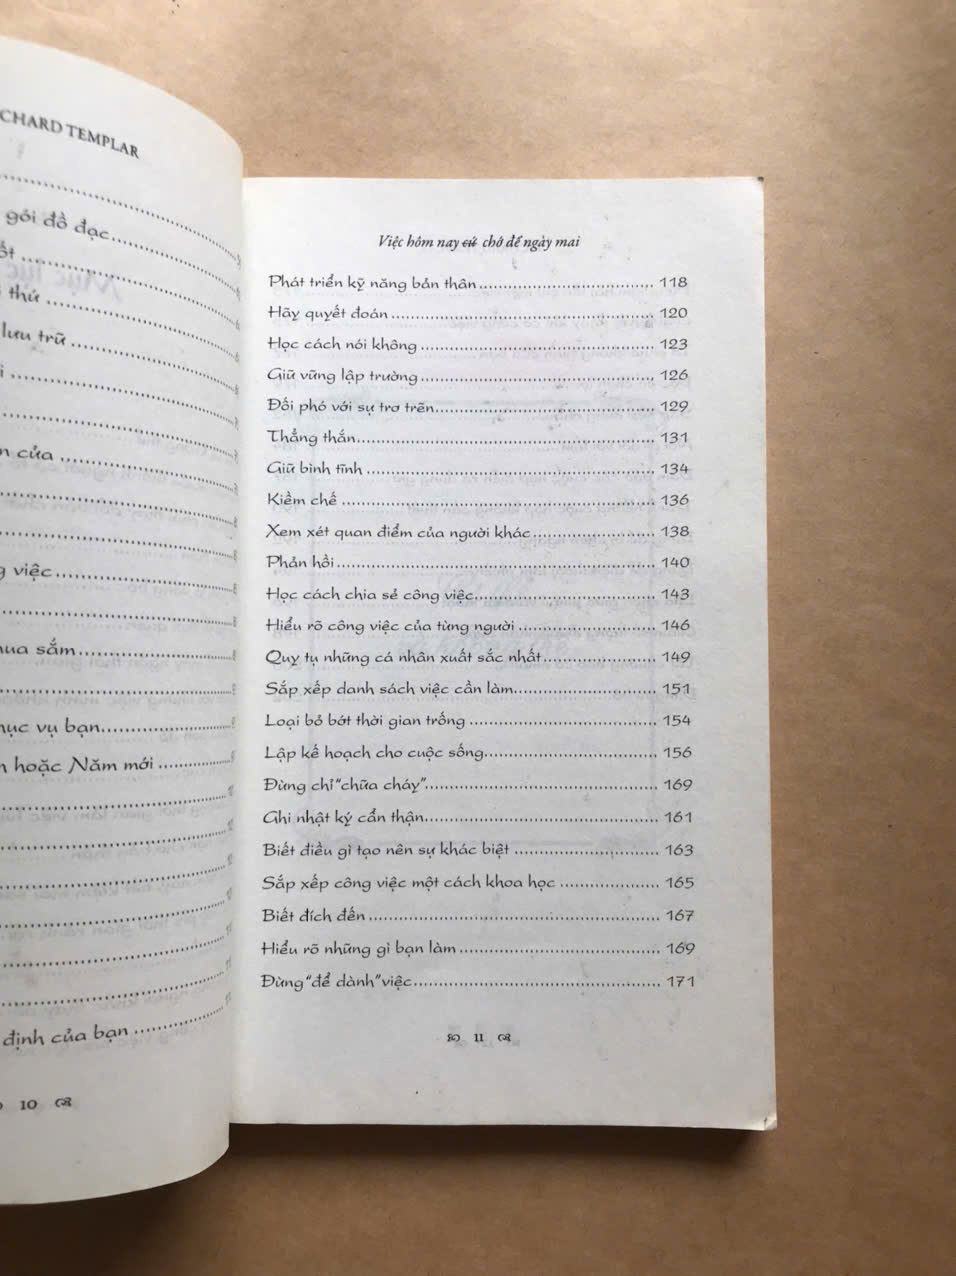 CHARD TEMPLAR
gói đồ đạc
ốt
thứ
lưu trữ
i
n cửa
g việc
ua sắm
ục vụ bạn
n hoặc Năm mới
định của bạn
10
Việc hôm nay cứ chớ để ngày mai
Phát triển kỹ năng bản thân 118
Hãy quyết đoán 120
Học cách nói không 123
Giữ vững lập trường 126
Đối phó với sự trơ trẽn 129
Thẳng thắn 131
Giữ bình tĩnh 134
Kiềm chế 136
Xem xét quan điểm của người khác 138
Phản hồi 140
Học cách chia sẻ công việc 143
Hiểu rõ công việc của từng người 146
Quy tụ những cá nhân xuất sắc nhất 149
Sắp xếp danh sách việc cần làm 151
Loại bỏ bớt thời gian trống 154
Lập kế hoạch cho cuộc sống 156
Đừng chỉ "chữa cháy" 169
Ghi nhật ký cẩn thận 161
Biết điều gì tạo nên sự khác biệt 163
Sắp xếp công việc một cách khoa học 165
Biết đích đến 167
Hiểu rõ những gì bạn làm 169
Đừng "để dành" việc 171
11